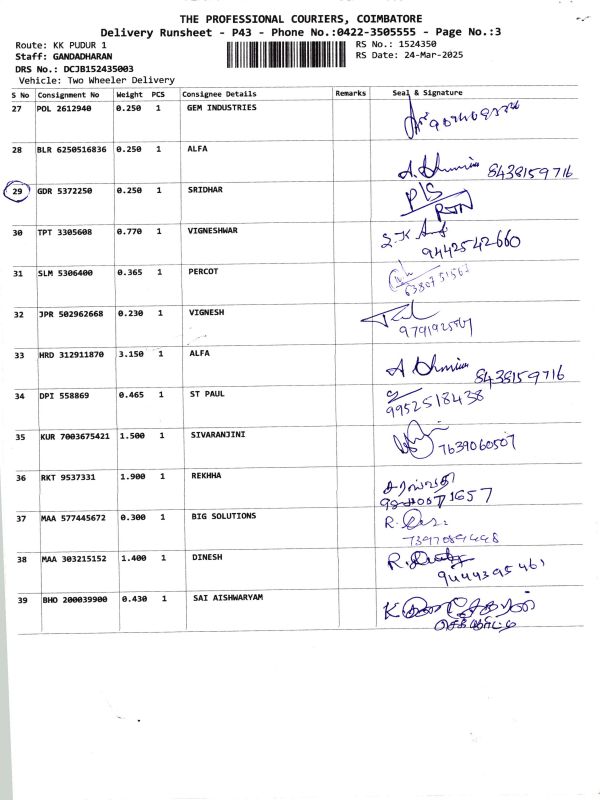 THE PROFESSIONAL COURIERS, COIMBATORE
Delivery Runsheet - P43 - Phone No.:0422-3505555 - Page No.:3
Route: KK PUDUR 1 RS No.: 1524350
Staff: GANDADHARAN RS Date: 24-Mar-2025
DRS No.: DCJB152435003
Vehicle: Two Wheeler Delivery
S No Consignment No Weight PCS Consignee Details Remarks Seal & Signature
27 POL 2612940 0.250 1 GEM INDUSTRIES
28 BLR 6250516836 0.250 1 ALFA
8438159716
29 GDR 5372250 0.250 1 SRIDHAR
P/S
30 TPT 3305608 0.770 1 VIGNESHWAR
9442542660
31 SLM 5306400 0.365 1 PERCOT
32 JPR 502962668 0.230 1 VIGNESH
33 HRD 312911870 3.150 1 ALFA
8438159716
34 DPI 558869 0.465 1 ST PAUL
9952518438
35 KUR 7003675421 1.500 1 SIVARANJINI
7639060507
36 RKT 9537331 1.900 1 REKHHA
37 MAA 577445672 0.300 1 BIG SOLUTIONS
38 MAA 303215152 1.400 1 DINESH
9444395461
39 BHO 200039900 0.430 1 SAI AISHWARYAM